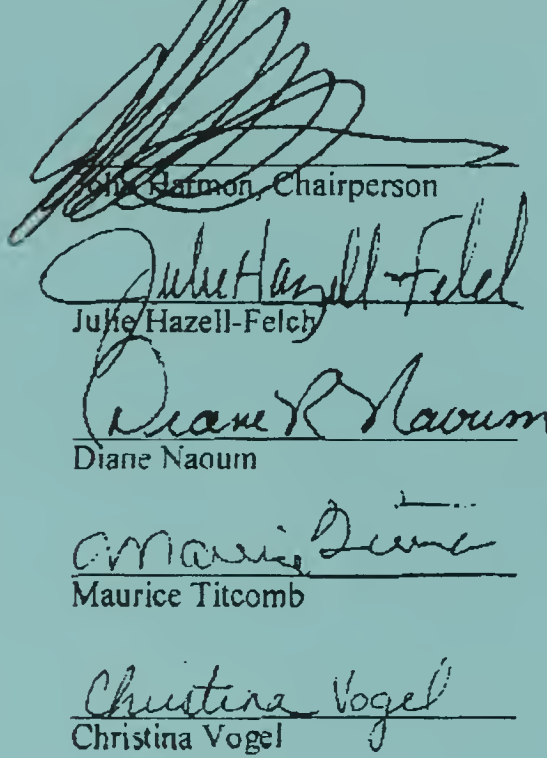 John Harmon, Chairperson
Julie Hazell-Felch
Julie Hazell-Felch
Diane R Naoum
Diane Naoum
Maurice
Maurice Titcomb
Christina Vogel
Christina Vogel